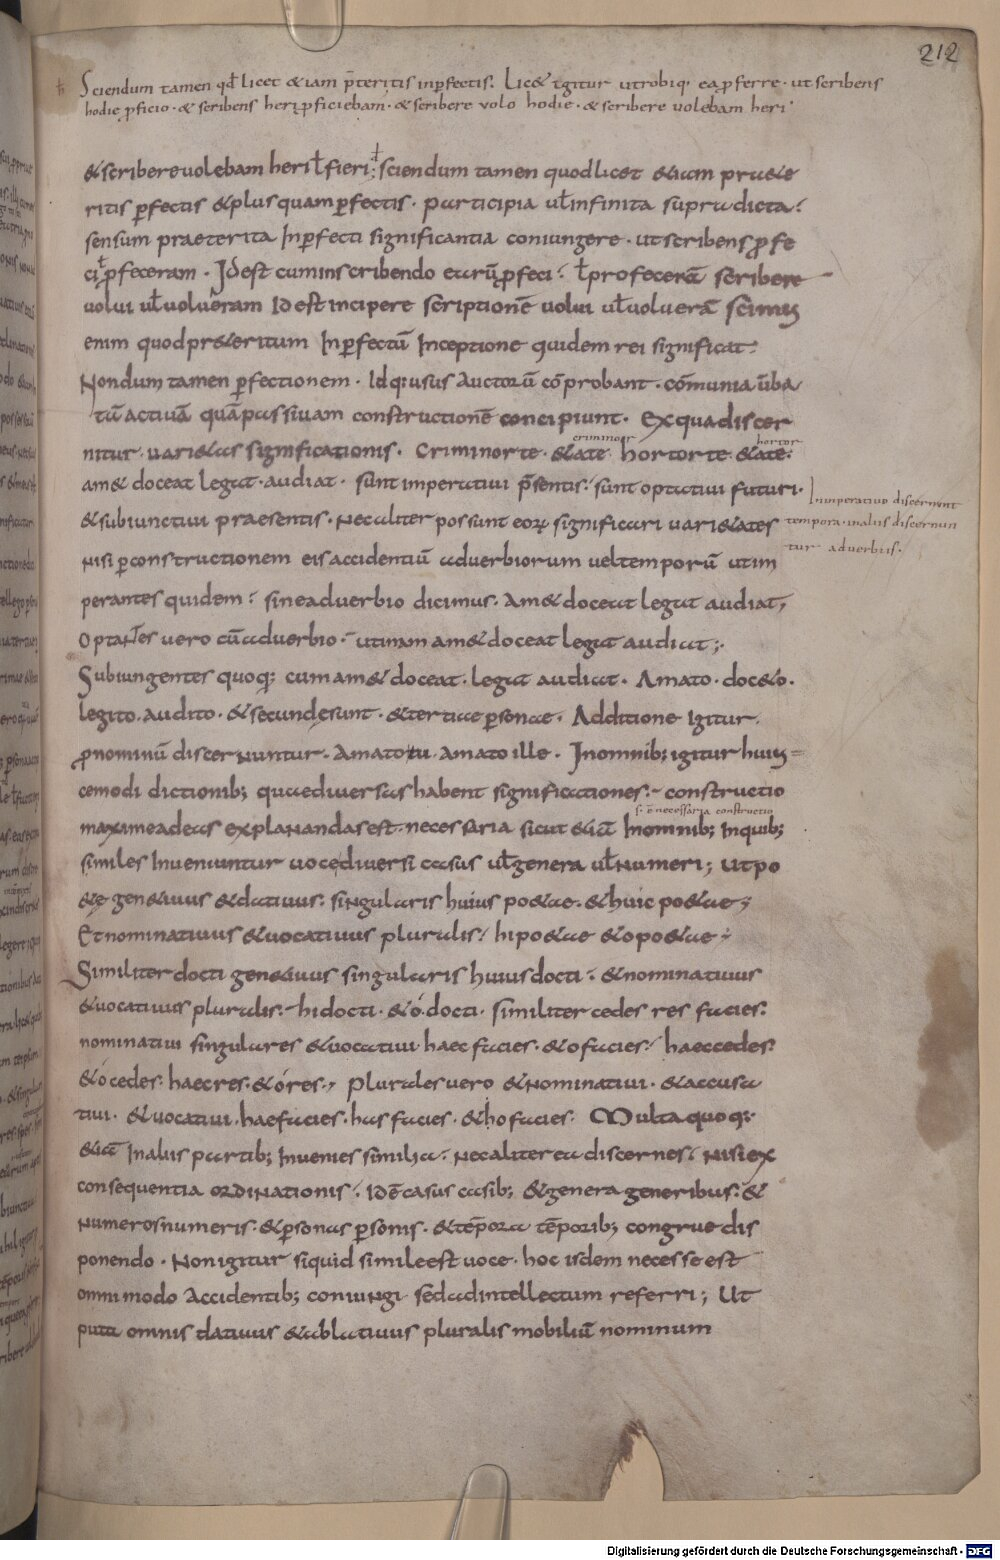 212
Sciendum tamen qđ licet &iam p̄teritis inp̱fectis. Lic& igitur utrobiq· ea p̱ferre · ut scribens
hodie p̱ficio · & scribens heri p̱ficiebam · & scribere volo hodie · & scribere uolebam heri·
& scribere uolebam heri ł fieri; sciendum tamen quod licet &iam pr&e
ritis p̱fectis & plusquam p̱fectis · participia uł infinita supra dicta ·
sensum praeterita Inp̱fecti significantia coniungere · ut scribens p̱fe
ci ł p̱feceram · Id est cum in scribendo eorū p̱feci · ł profecerā scribere
uolui uł uolueram Id est incipere scriptionē uolui uł uoluerā scimus
enim quod pr&eritum Inp̱fectū Inceptione quidem rei significat ·
Nondum tamen p̱fectionem · Idq: usus auctorū cōprobant · cōmunia ūba
tā actiuā quā passiuam constructionē concipiunt · Ex qua discer
criminor hortor
nitur · uari&as significationis · Criminor te · & a te hortor te & a te:
am& doceat legat · audiat · sunt imperatiui p̄sentis · sunt optatiui futuri ·
In imperatiuo discernunt
& subiunctiui praesentis · Nec aliter possunt eoꝝ significari uari&ates
tempora · in aliis discernun
nisi p̱ constructionem eis accidentiū aduerbiorum uel temporū ut im
tur aduerbiis ·
perantes quidem · sine aduerbio dicimus · Am& doceat legat audiat,
optantes uero cū aduerbio · utinam am& doceat legat audiat;
Subiungentes quoq; cum am& doceat · legat audiat · Amato · doc&o ·
legito · audito · & secundę sunt · & tertiae p̱sonae · Additione Igitur
p̱nominū discernuntur · Amato tu · amato ille · In omnib; igitur huius
cemodi dictionib; quae diuersas habent significationes · constructio
s· ē necessaria constructio
maxime ad eas explanandas est necessaria sicut &iā In omnib; In quib;
similes Inueniuntur uoce diuersi casus uł genera uł numeri; ut po
&ę gen&iuus & datiuus · singularis huius po&ae · & huic po&ae;
Et nominatiuus & uocatiuus pluralis · hi po&ae & o po&ae ·
Similiter docti gen&iuus singularis huius docti · & nominatiuus
& uocatiuus pluralis · hi docti · & ó docti · similiter cedes res facies:
nominatiui singulares & uocatiui haec facies · & o facies · haec cedes:
& ó cedes: haec res · & ó res · plurales uero & nominatiui · & accusa
tiui · & uocatiui · hae facies · has facies · & ho facies · Multa quoq;
&iā In aliis partib; Inuenies similia · Nec aliter ea discernes · nisi ex
consequentia ordinationis · Id ē casus casib; & genera generibus · &
numeros numeris · & p̱sonas p̱sonis · & tēpora tēporib; congrue dis
ponendo · Non igitur si quid simile est uoce · hoc isdem necesse est
omnimodo Accidentib; coniungi sed ad intellectum referri; Ut
puta omnis datiuus & ablatiuus pluralis mobiliū nominum
Digitalisierung gefördert durch die Deutsche Forschungsgemeinschaft - DFG